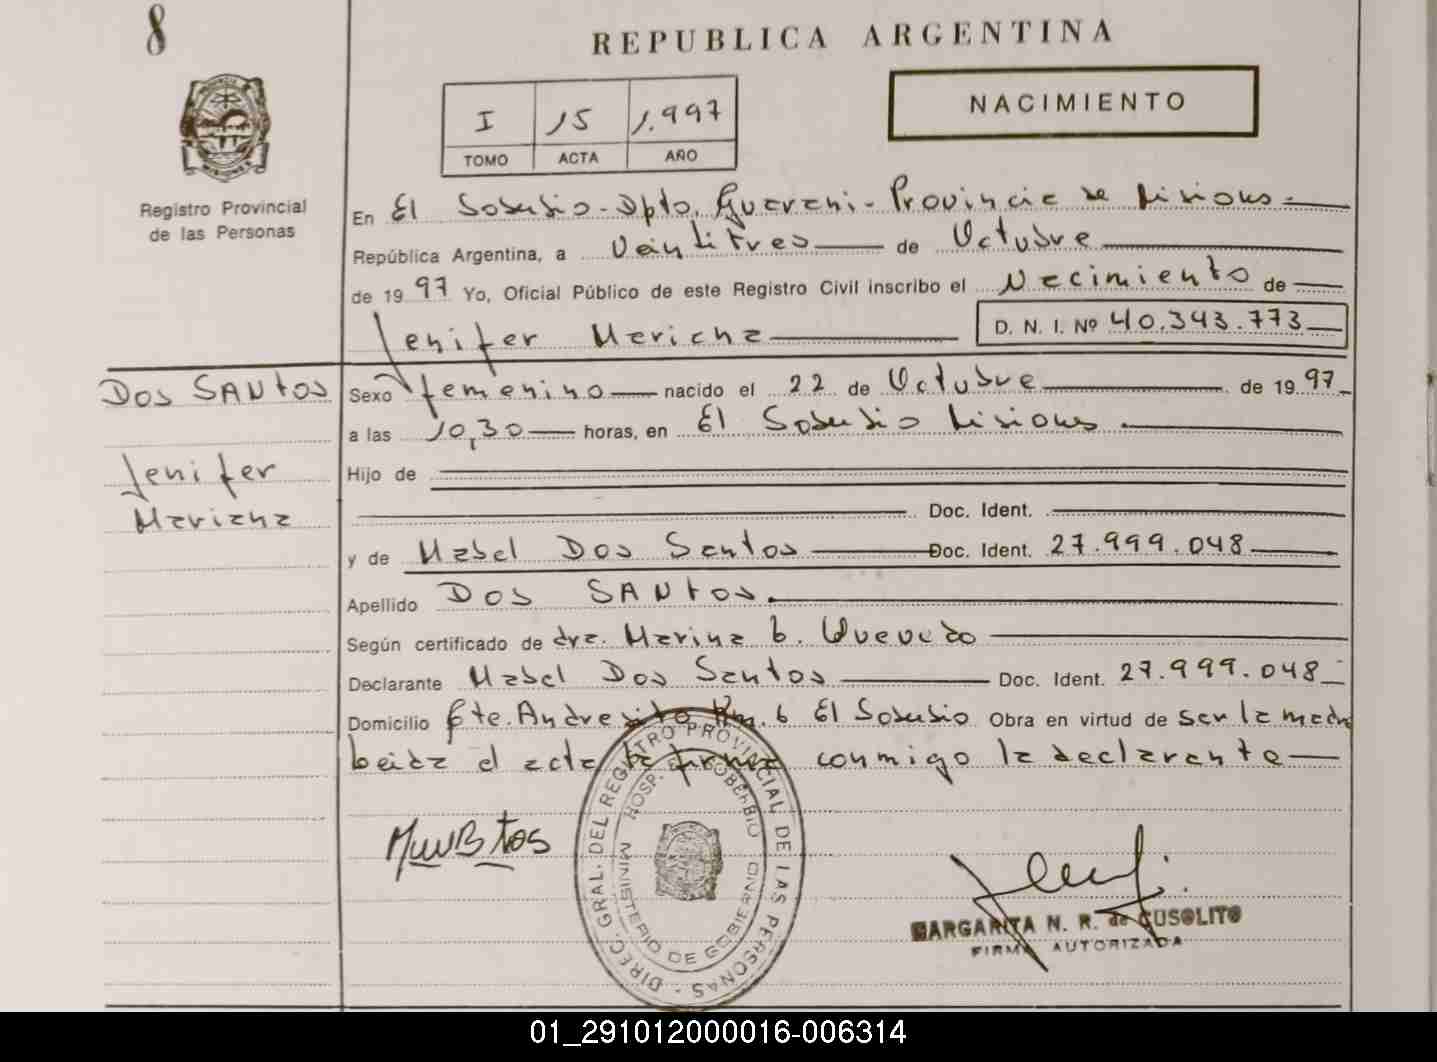 8
REPUBLICA ARGENTINA
NACIMIENTO
I 15 1.997
TOMO ACTA AÑO
PROVINCIA DE
MISIONES
Registro Provincial
de las Personas
En El Soberbio - Dpto. Guarani - Provincia de Misiones.
República Argentina, a Veintitres de Octubre
de 1997 Yo, Oficial Público de este Registro Civil inscribo el Nacimiento de
Jenifer Mariana D. N. I. Nº 40.343.773
DOS SANTOS
Jenifer
Mariana
Sexo femenino nacido el 22 de Octubre de 1997
a las 10,30 horas, en El Soberbio Misiones.
Hijo de
Doc. Ident.
y de Mabel Dos Santos Doc. Ident. 27.999.048
Apellido DOS SANTOS.
Según certificado de dra. Marina b. Quevedo
Declarante Mabel Dos Santos Doc. Ident. 27.999.048
Domicilio Pte. Andresito Km. 6 El Soberbio Obra en virtud de ser la madre
Leida el acta la firma conmigo la declarante
DIREC. GRAL. DEL REGISTRO PROVINCIAL DE LAS PERSONAS -
HOSP. EL SOBERBIO
MINISTERIO DE GOBIERNO
MARGARITA N. R. de CUSOLITO
FIRMA AUTORIZADA
01_291012000016-006314